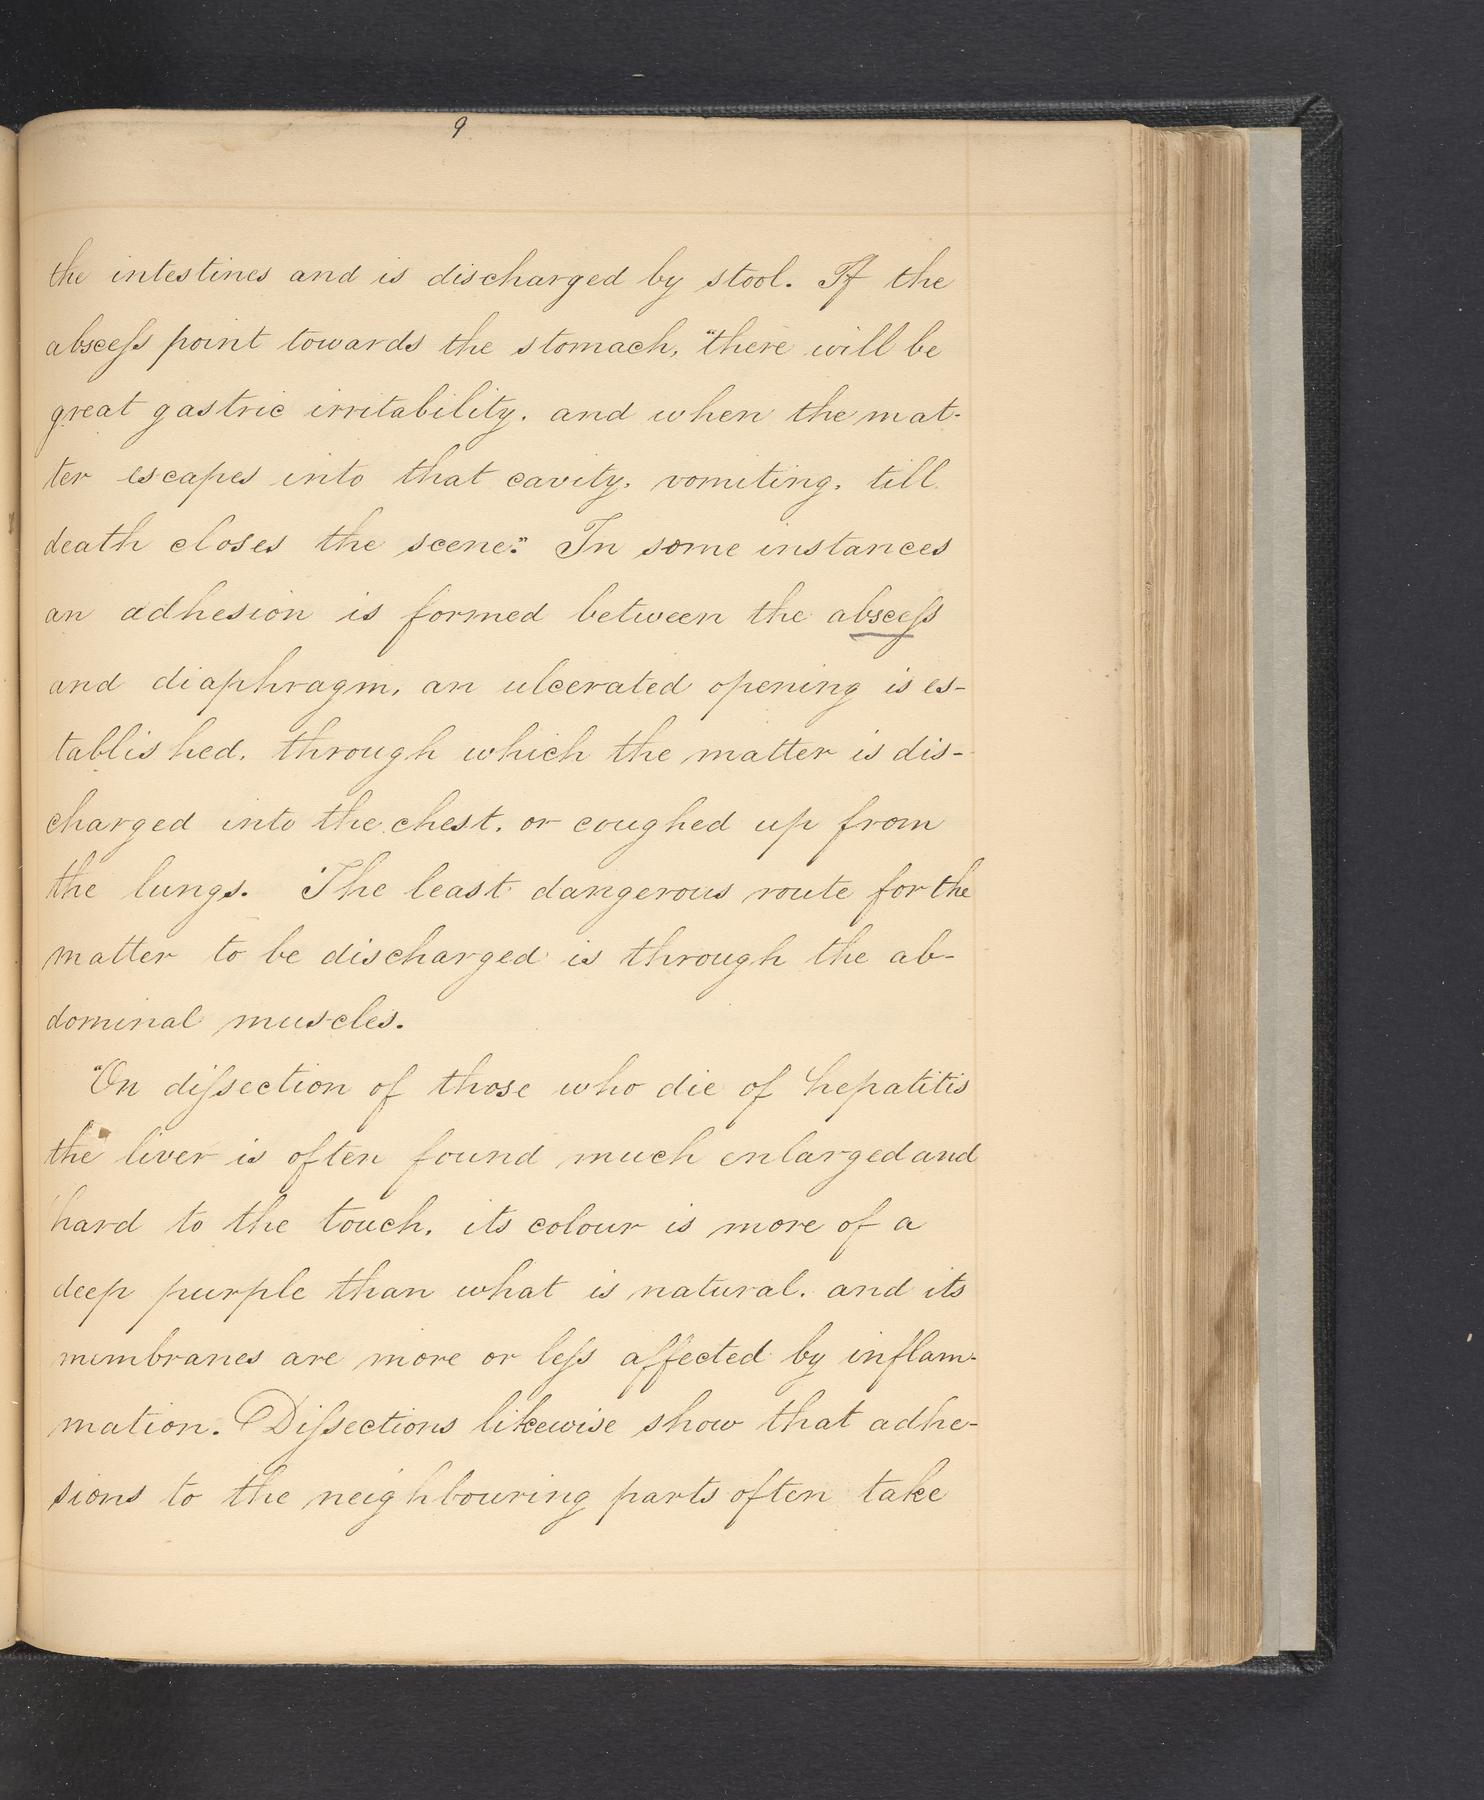 9
the intestines and is discharged by stool. If the
absceſs point towards the stomach, "there will be
great gastric irritability. and when the mat-
ter escapes into that cavity, vomiting, till
death closes the scene." In some instances
an adhesion is formed between the absceſs
and diaphragm, an ulcerated opening is es-
tablished, through which the matter is dis-
charged into the chest, or coughed up from
the lungs. The least dangerous route for the
matter to be discharged is through the ab-
dominal muscles.
"On diſsection of those who die of hepatitis
the liver is often found much enlarged and
hard to the touch, its colour is more of a
deep purple than what is natural, and its
membranes are more or leſs affected by inflam-
mation. Diſsections likewise show that adhe-
sions to the neighbouring parts often take